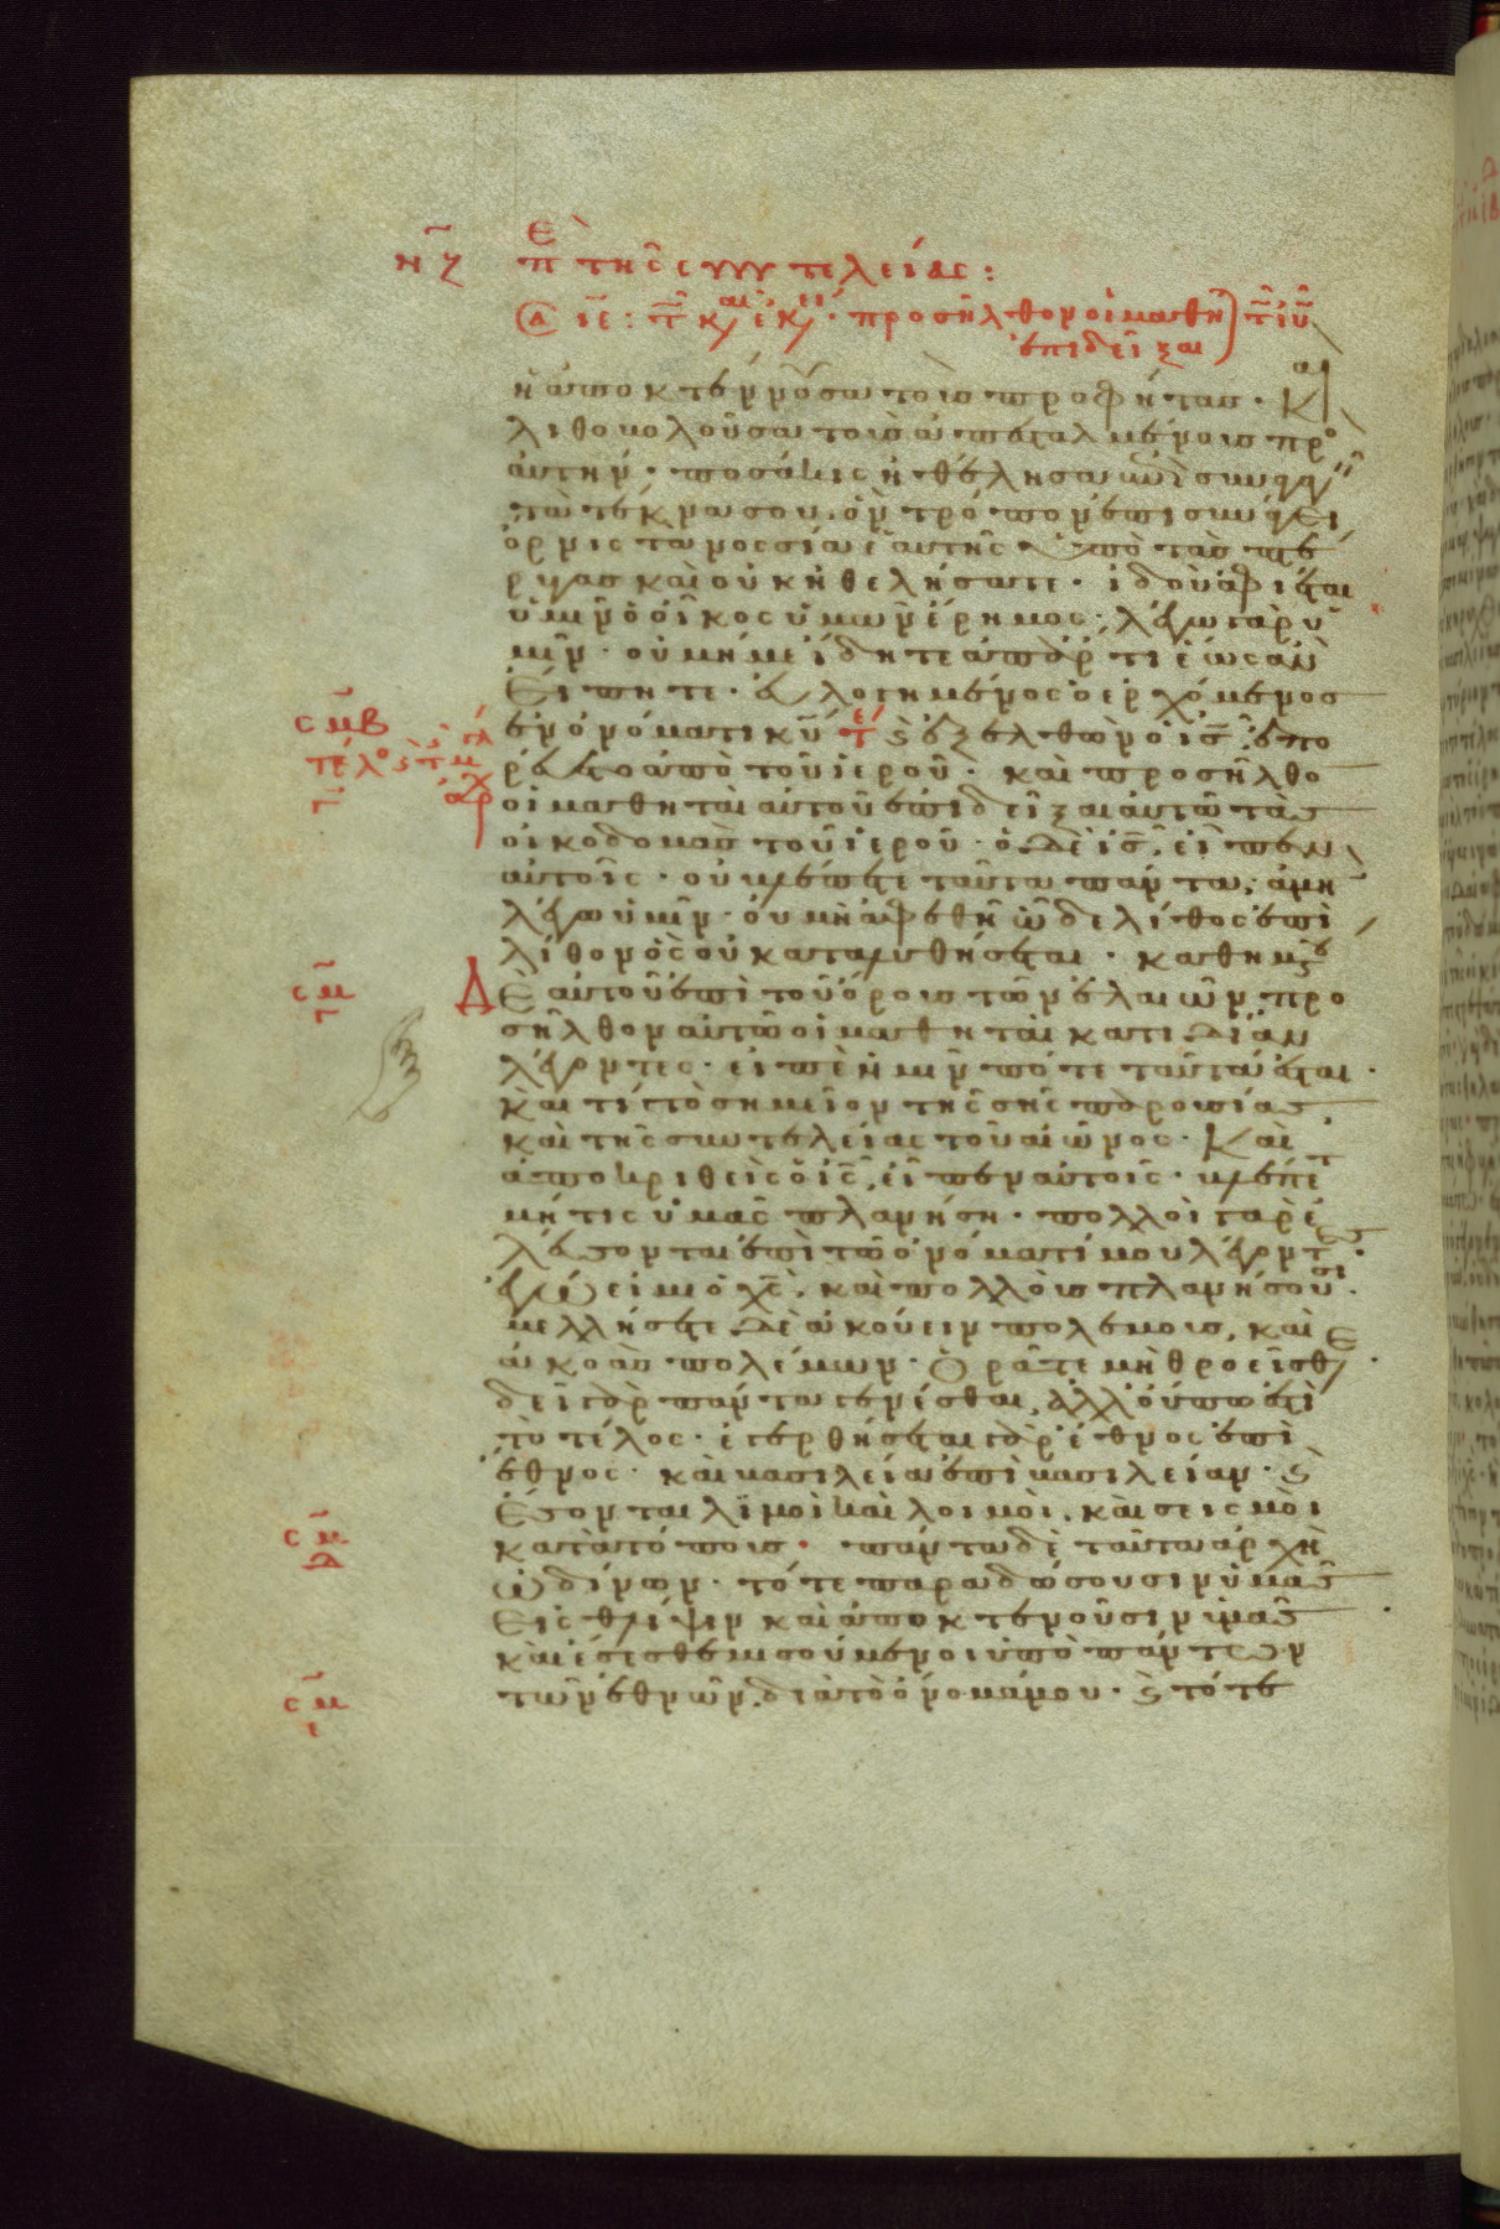 νζ πε τῆς συντελείας:
ιε: τῷ καιρῷ ἐκείνῳ· προσῆλθον οἱ μαθηταὶ τῷ ἰῦ
ἐπιδεῖξαι
ἡ ἀποκτέννουσα τοὺς προφήτας· καὶ
λιθοβολοῦσα τοὺς ἀπεσταλμένους πρὸς
αὐτήν· ποσάκις ἠθέλησα ἐπισυναγαγεῖν
τὰ τέκνα σου· ὃν τρόπον ἐπισυνάγει
ὄρνις τὰ νοσσία ἑαυτῆς ὑπὸ τὰς πτέ
ρυγας καὶ οὐκ ἠθελήσατε· ἰδοὺ ἀφίεται
ὑμῖν ὁ οἶκος ὑμῶν ἔρημος· λέγω γὰρ ὑ
μῖν· οὐ μή με ἴδητε ἀπάρτι ἕως ἂν
εἴπητε· εὐλογημένος ὁ ἐρχόμενος
ἐν ὀνόματι κυ τε καὶ ἐξελθὼν ὁ ις ἐπο
ρεύετο ἀπὸ τοῦ ἱεροῦ· καὶ προσῆλθο
οἱ μαθηταὶ αὐτοῦ ἐπιδεῖξαι αὐτῷ τὰς
οἰκοδομὰς τοῦ ἱεροῦ· ὁ δὲ ις εἶπεν
αὐτοῖς· οὐ βλέπετε ταῦτα πάντα; ἀμὴν
λέγω ὑμῖν· οὐ μὴ ἀφεθῇ ὧδε λίθος ἐπὶ
λίθον ὃς οὐ καταλυθήσεται· καθημένου
Δὲ αὐτοῦ ἐπὶ τοῦ ὄρους τῶν ἐλαιῶν προ
σῆλθον αὐτῷ οἱ μαθηταὶ κατιδίαν
λέγοντες· εἰπὲ ἡμῖν πότε ταῦτα ἔσται·
καὶ τί τὸ σημεῖον τῆς σῆς παρουσίας
καὶ τῆς συντελείας τοῦ αἰῶνος· Καὶ
ἀποκριθεὶς ὁ ις εἶπεν αὐτοῖς· βλέπετε
μή τις ὑμᾶς πλανήσῃ· πολλοὶ γὰρ ἐ
λεύσονται ἐπὶ τῷ ὀνόματί μου λέγοντες·
ἐγώ εἰμι ὁ χς· καὶ πολλοὺς πλανήσουσι·
μελλήσετε δὲ ἀκούειν πολέμους, καὶ
ἀκοὰς πολέμων· Ὁρᾶτε μὴ θροεῖσθε·
δεῖ γὰρ πάντα γενέσθαι, ἀλλ' οὔπω ἐστὶ
τὸ τέλος· ἐγερθήσεται γὰρ ἔθνος ἐπὶ
ἔθνος· καὶ βασιλεία ἐπὶ βασιλείαν· καὶ
ἔσονται λιμοὶ καὶ λοιμοὶ, καὶ σεισμοὶ
κατὰ τόπους· πάντα δὲ ταῦτα ἀρχὴ
ὠδίνων· τότε παραδώσουσιν ὑμᾶς
εἰς θλίψιν καὶ ἀποκτενοῦσιν ὑμᾶς
καὶ ἔσεσθε μισούμενοι ὑπὸ πάντων
τῶν ἐθνῶν διὰ τὸ ὄνομά μου· καὶ τότε
σμβ
τέλος
ἀρχ
σμγ
σμδ
σμε